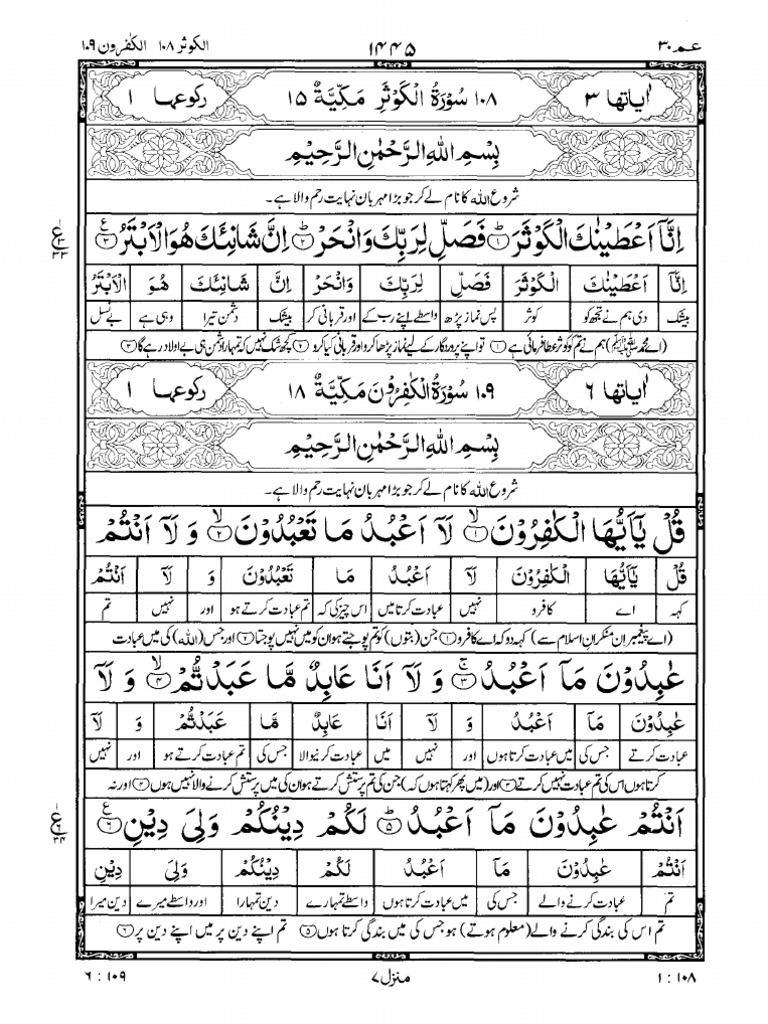 عـم ٣٠ ١٤٤٥ الكوثر ١٠٨ الكٰفرون ١٠٩
اٰیاتها ٣ ١٠٨ سُوْرَةُ الْكَوْثَرِ مَكِّيَّةٌ ١٥ رکوعها ١
بِسْمِ اللهِ الرَّحْمٰنِ الرَّحِيْمِ
شروع الله کا نام لے کر جو بڑا مہربان نہایت رحم والا ہے۔
اِنَّاۤ اَعْطَيْنٰكَ الْكَوْثَرَ ۱ فَصَلِّ لِرَبِّكَ وَانْحَرْ ۲ اِنَّ شَانِئَكَ هُوَ الْاَبْتَرُ ۳
اِنَّاۤ اَعْطَيْنٰكَ الْكَوْثَرَ فَصَلِّ لِرَبِّكَ وَانْحَرْ اِنَّ شَانِئَكَ هُوَ الْاَبْتَرُ
بیشک دی ہم نے تجھ کو کوثر پس نماز پڑھ واسطے اپنے رب کے اور قربانی کر بیشک دشمن تیرا وہی ہے بے نسل
(اے محمد ﷺ) ہم نے تم کو کوثر عطا فرمائی ہے ۱ تو اپنے پروردگار کے لیے نماز پڑھا کرو اور قربانی کیا کرو ۲ کچھ شک نہیں کہ تمہارا دشمن ہی بے اولاد رہے گا ۳
اٰیاتها ٦ ١٠٩ سُوْرَةُ الْكٰفِرُوْنَ مَكِّيَّةٌ ١٨ رکوعها ١
بِسْمِ اللهِ الرَّحْمٰنِ الرَّحِيْمِ
شروع الله کا نام لے کر جو بڑا مہربان نہایت رحم والا ہے۔
قُلْ يٰۤاَيُّهَا الْكٰفِرُوْنَ ۱ لَاۤ اَعْبُدُ مَا تَعْبُدُوْنَ ۲ وَ لَاۤ اَنْتُمْ
قُلْ يٰۤاَيُّهَا الْكٰفِرُوْنَ لَاۤ اَعْبُدُ مَا تَعْبُدُوْنَ وَ لَاۤ اَنْتُمْ
کہہ اے کافرو نہیں عبادت کرتا میں اس چیز کی کہ تم عبادت کرتے ہو اور نہیں تم
(اے پیغمبر ان منکران اسلام سے) کہہ دو کہ اے کافرو ۱ جن (بتوں) کو تم پوجتے ہو ان کو میں نہیں پوجتا ۲ اور جس (الله) کی میں عبادت
عٰبِدُوْنَ مَاۤ اَعْبُدُ ۳ وَ لَاۤ اَنَا عَابِدٌ مَّا عَبَدْتُّمْ ۴ وَ لَاۤ
عٰبِدُوْنَ مَاۤ اَعْبُدُ وَ لَاۤ اَنَا عَابِدٌ مَّا عَبَدْتُّمْ وَ لَاۤ
عبادت کرتے جس کی میں عبادت کرتا ہوں اور نہیں میں عبادت کرنیوالا جس کی تم عبادت کرتے ہو اور نہیں
کرتا ہوں اس کی تم عبادت نہیں کرتے ۳ اور (میں پھر کہتا ہوں کہ) جن کی تم پرستش کرتے ہو ان کی میں پرستش کرنے والا نہیں ہوں ۴ اور نہ
اَنْتُمْ عٰبِدُوْنَ مَاۤ اَعْبُدُ ۵ لَكُمْ دِيْنُكُمْ وَلِيَ دِيْنِ ۶
اَنْتُمْ عٰبِدُوْنَ مَاۤ اَعْبُدُ لَكُمْ دِيْنُكُمْ وَلِيَ دِيْنِ
تم عبادت کرنے والے جس کی میں عبادت کرتا ہوں واسطے تمہارے دین تمہارا اور واسطے میرے دین میرا
تم اس کی بندگی کرنے والے (معلوم ہوتے) ہو جس کی میں بندگی کرتا ہوں ۵ تم اپنے دین پر میں اپنے دین پر ۶
١ : ١٠٨ منزل ٧ ٦ : ١٠٩